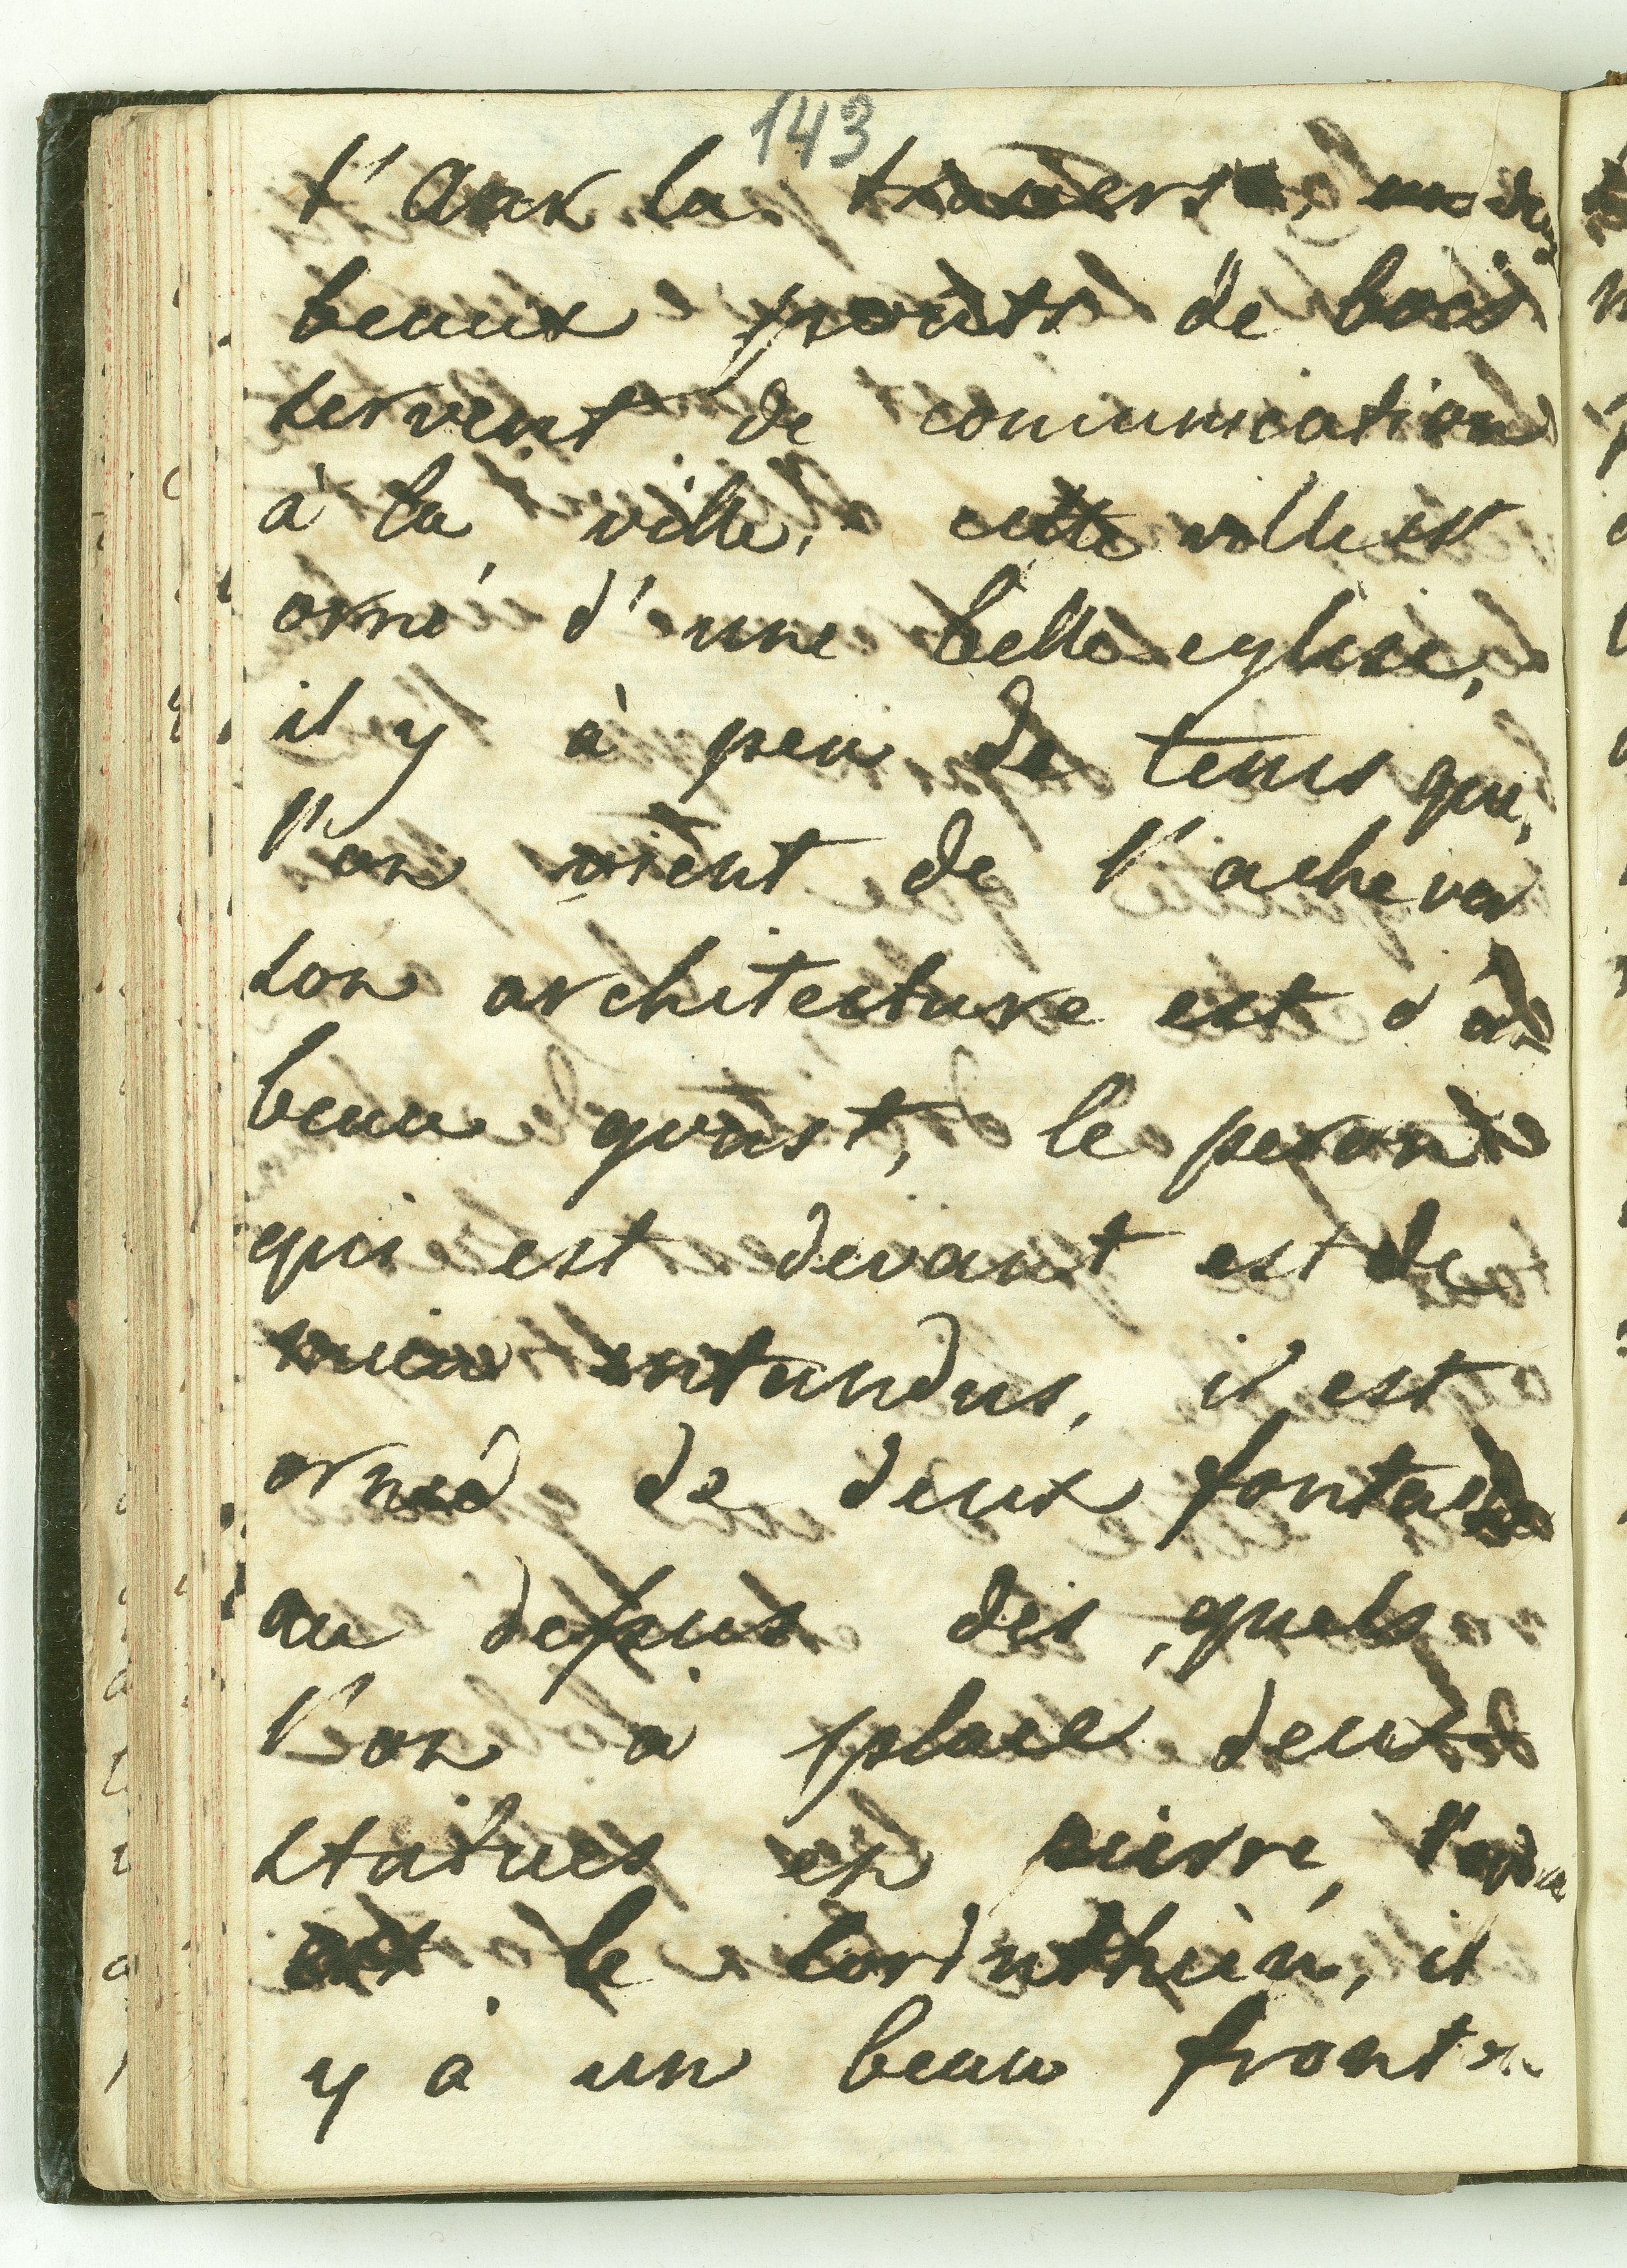 143
l'Aar la traverse,
beaux ponts de bois
servent de comunication
à la ville, cette ville est
orné d'une belle eglise,
il y à peu de tems que
l'on vient de l'achever
son architecture est d'un
beau goust, le peront
qui est devant est de
mieu entandus, il est
orné de deux fontaine
au dessus des quels
l'on a place deux
statues en pierre, l'ordre
est le Corinthien, il
y a un beau fronton